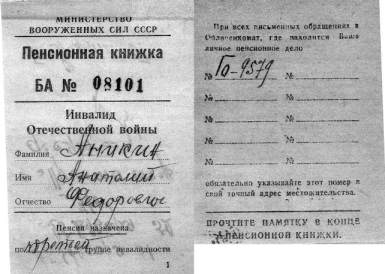 МИНИСТЕРСТВО
ВООРУЖЕННЫХ СИЛ СССР
Пенсионная книжка
БА № 08101
Инвалид
Отечественной войны
Фамилия Аникин
Имя Анатолий
Отчество Федорович
Пенсия назначена
по третьей группе инвалидности
1
При всех письменных обращениях в
Облвоенкомат, где находится Ваше
личное пенсионное дело
№ ГО-9579 №
№ №
№ №
№ №
№ №
обязательно указывайте этот номер и
свой точный адрес местожительства.
ПРОЧТИТЕ ПАМЯТКУ В КОНЦЕ
ПЕНСИОННОЙ КНИЖКИ.